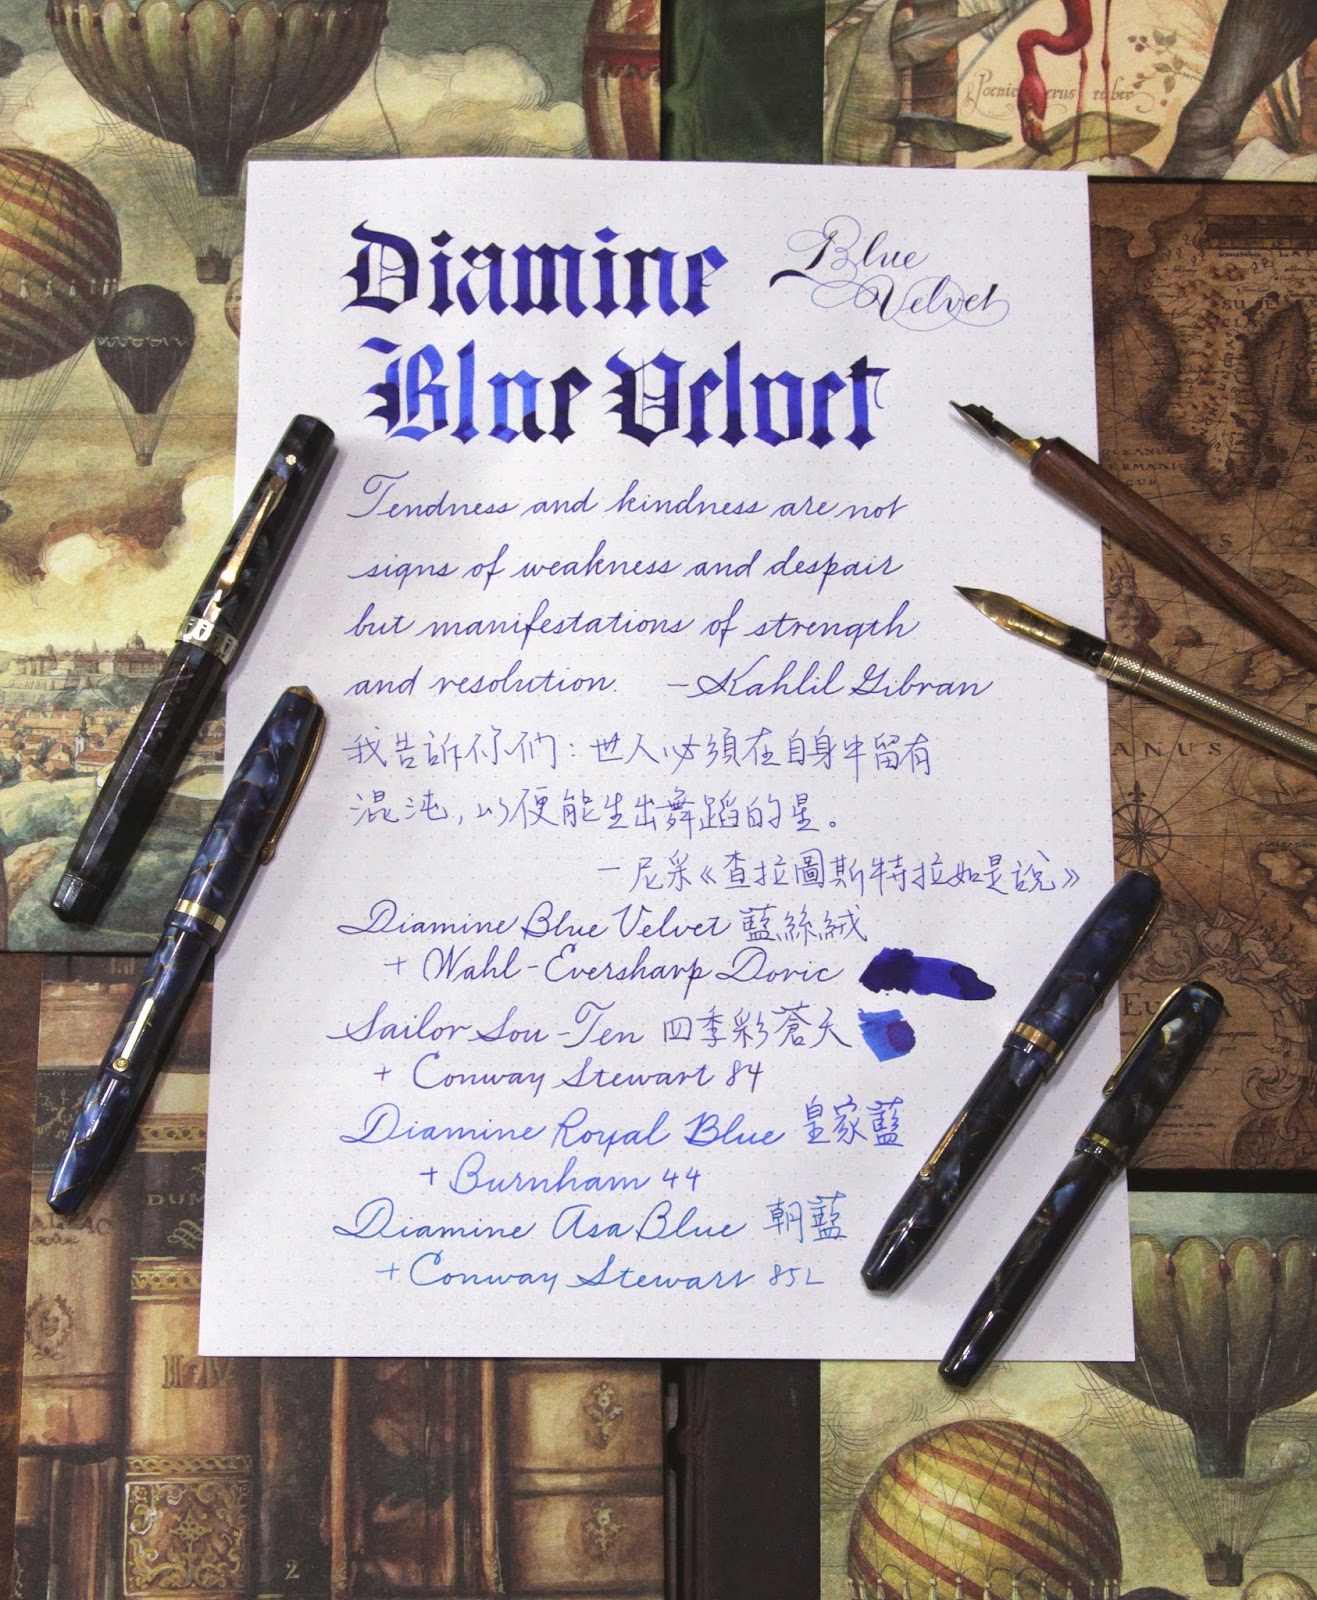 Diamine
Blue
Velvet
Blue Velvet
Tendness and kindness are not
signs of weakness and despair
but manifestations of strength
and resolution. – Kahlil Gibran
我告訴你們：世人必須在自身中留有
混沌，以便能生出舞蹈的星。
— 尼采《查拉圖斯特拉如是說》
Diamine Blue Velvet 藍絲絨
+ Wahl-Eversharp Doric
Sailor Sou-Ten 四季彩蒼天
+ Conway Stewart 84
Diamine Royal Blue 皇家藍
+ Burnham 44
Diamine Asa Blue 朝藍
+ Conway Stewart 85L
II-IV
2